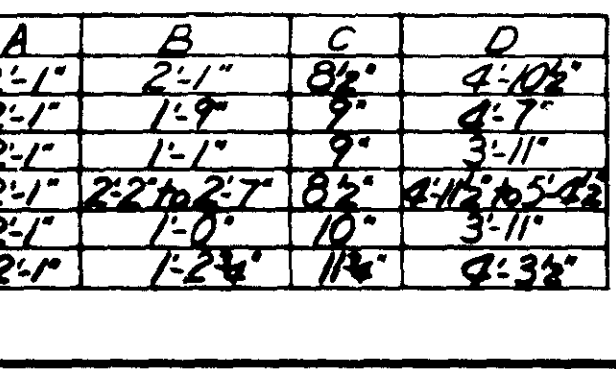 A B C D
2'-1" 2'-1" 8½" 4'-10½"
2'-1" 1'-9" 9" 4'-7"
2'-1" 1'-1" 9" 3'-11"
2'-1" 2'-2" to 2'-7" 8½" 4'-11½" to 5'-4½"
2'-1" 1'-0" 10" 3'-11"
2'-1" 1'-2¾" 11¾" 4'-3½"